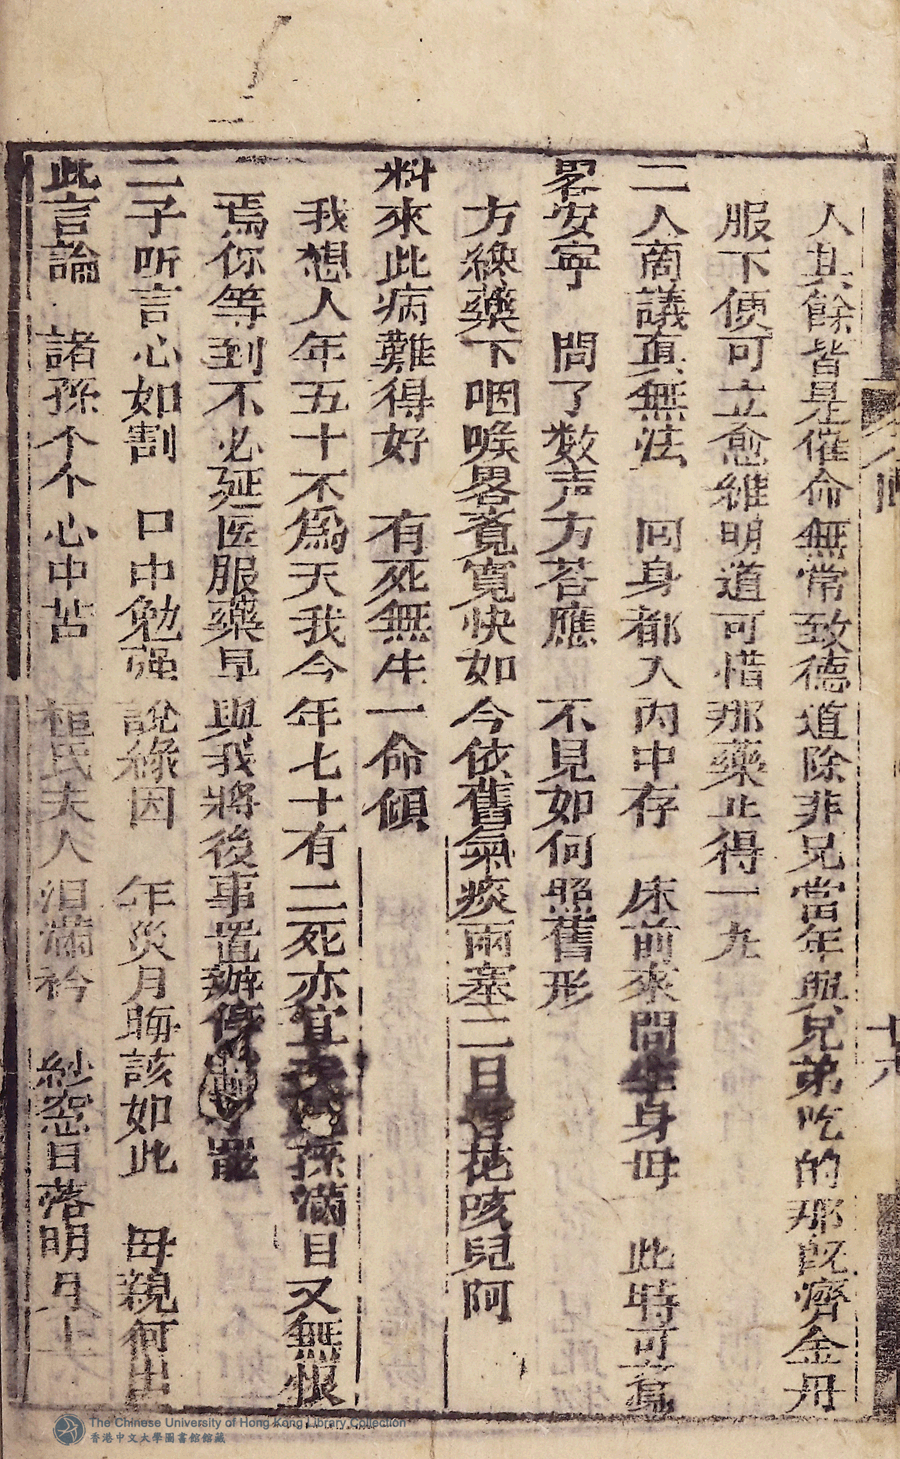 人其餘皆是催命無常致德道除非兄當年與兄弟吃的那既濟金丹
服下便可立愈維明道可惜那藥止得一九
二人商議真無法　回身都入內中存　床前來問生身母　此時可
畧安寧　問了数声方荅應　不見如何照舊形
方纔藥下咽喉畧覺寬快如今依舊氣痰兩塞二目昏花咳兒阿
料來此病難得好　有死無生一命傾
我想人年五十不為夭我今年七十有二死亦宜孫滿目又無恨
焉你等到不必延医服藥早與我將後事置辦停罷
二子听言心如割　口中勉强說緣因　年災月晦該如此　母親何出
此言論　諸孫个个心中苦　桓氏夫人泪滿衿　紗窓日落明月上
廿六
The Chinese University of Hong Kong Library Collection
香港中文大學圖書館館藏